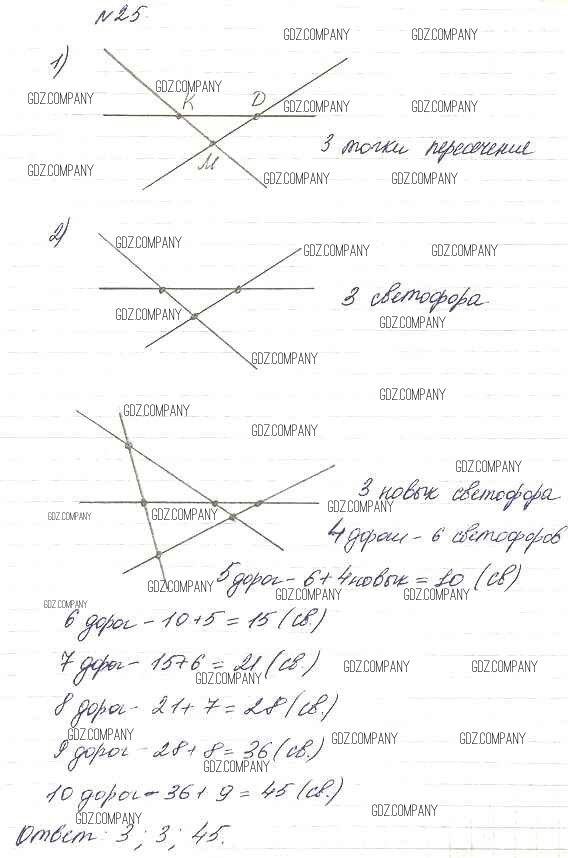 №25.
GDZ.COMPANY GDZ.COMPANY
1)
GDZ.COMPANY
GDZ.COMPANY K D GDZ.COMPANY GDZ.COMPANY
3 точки пересечения
M
GDZ.COMPANY GDZ.COMPANY GDZ.COMPANY
2)
GDZ.COMPANY GDZ.COMPANY GDZ.COMPANY
3 светофора
GDZ.COMPANY GDZ.COMPANY
GDZ.COMPANY
GDZ.COMPANY
GDZ.COMPANY GDZ.COMPANY
GDZ.COMPANY
3 новых светофора
GDZ.COMPANY
GDZ.COMPANY GDZ.COMPANY
4 дороги - 6 светофоров
5 дорог - 6 + 4 новых = 10 (св)
GDZ.COMPANY GDZ.COMPANY GDZ.COMPANY
GDZ.COMPANY
6 дорог - 10 + 5 = 15 (св.)
7 дорог - 15 + 6 = 21 (св.)
GDZ.COMPANY GDZ.COMPANY GDZ.COMPANY
8 дорог - 21 + 7 = 28 (св.)
GDZ.COMPANY GDZ.COMPANY GDZ.COMPANY
9 дорог - 28 + 8 = 36 (св.)
GDZ.COMPANY
10 дорог - 36 + 9 = 45 (св.)
GDZ.COMPANY GDZ.COMPANY
Ответ: 3; 3; 45.